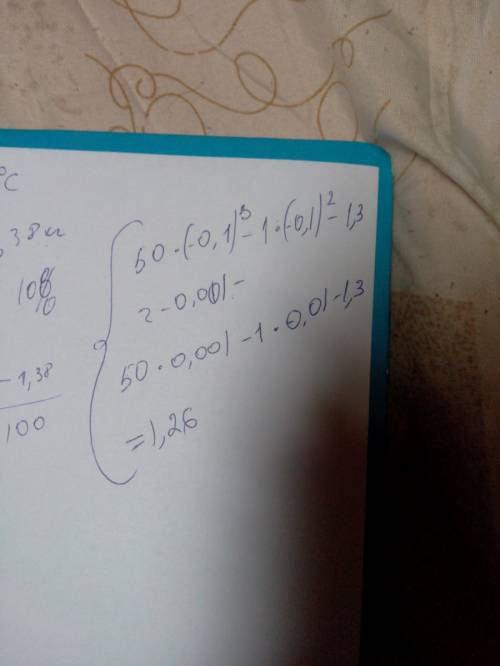 °C
,38 кг
100%
-1,38
100
50 · (-0,1)³ - 1 · (-0,1)² - 1,3
= -0,001 -
50 · 0,001 - 1 · 0,01 - 1,3
= 1,26